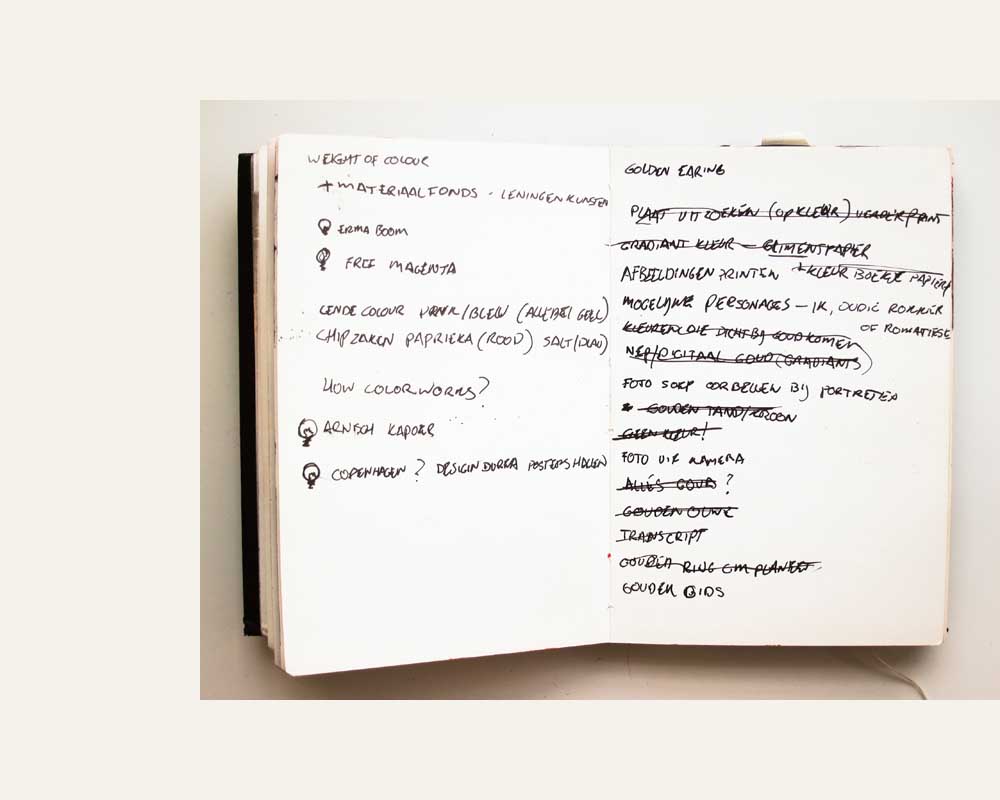 WEIGHT OF COLOUR
+ MATERIAALFONDS - LENINGEN KUNSTEN
IRMA BOOM
FREE MAGENTA
COLOUR / BLEU (ALLEBEI GEEL)
CHIPZAKEN PAPRIEKA (ROOD) SALT (BLAU)
HOW COLOR WORKS?
ANISCH KAPOER
COPENHAGEN? DESIGN POSTERS HALLEN
GOLDEN EARING
PLAAT UITZOEKEN (OP KLEUR) VERDER PRINT
GRADIANT KLEUR - GLIMENSPAPIER
AFBEELDINGEN PRINTEN + KLEUR BOEKJE PAPIER
MOGELIJKE PERSONAGES - IK, OUDIE ROKKER
OF ROMATIESE
KLEUREN DIE DICHTBIJ GOUD KOMEN
NEP/DIGITAAL GOUD (GRADIANTS)
FOTO SOEP OORBELLEN BIJ PORTRETEN
GOUDEN TAND/KROON
GEEN KLEUR!
FOTO UIT KAMERA
ALLES GOUD?
GOUDEN
TRANSCRIPT
GOUDEN RING OM PLANEET
GOUDEN GIDS